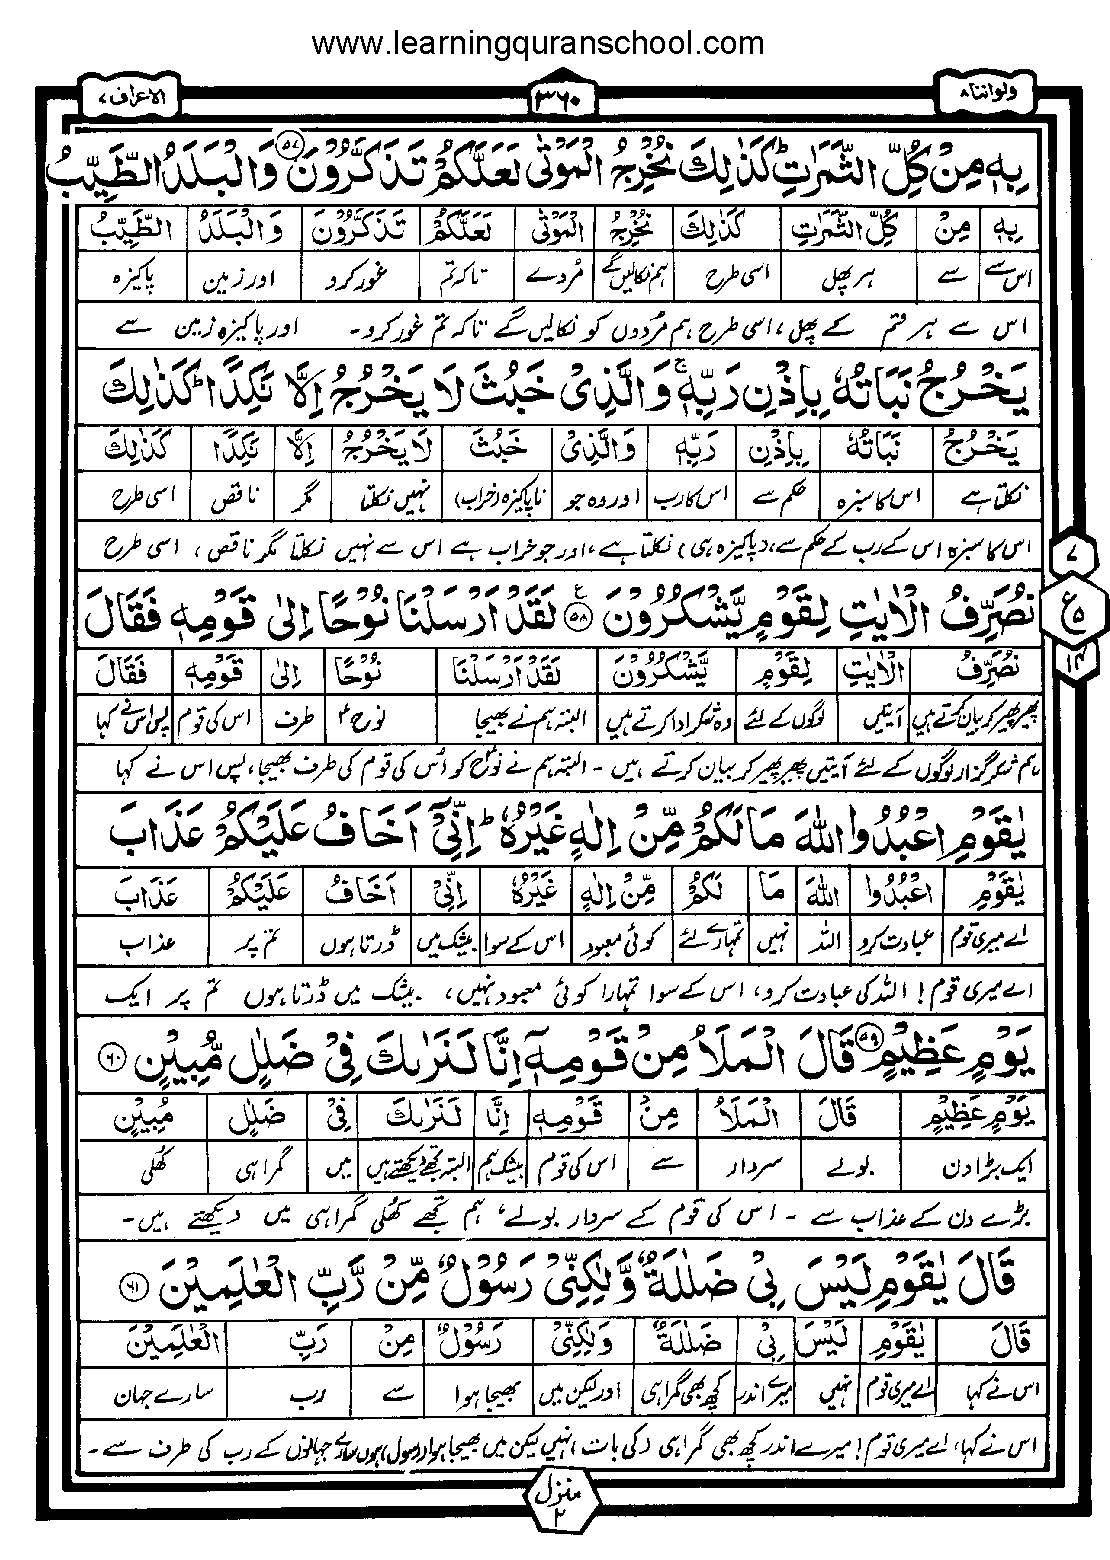 www.learningquranschool.com
ولواننا۸ ۳۶۰ الاعراف۷
بِهٖ مِنْ كُلِّ الثَّمَرٰتِ ؕ كَذٰلِكَ نُخْرِجُ الْمَوْتٰى لَعَلَّكُمْ تَذَكَّرُوْنَ ۵۷ وَالْبَلَدُ الطَّيِّبُ
بِهٖ مِنْ كُلِّ الثَّمَرٰتِ كَذٰلِكَ نُخْرِجُ الْمَوْتٰى لَعَلَّكُمْ تَذَكَّرُوْنَ وَالْبَلَدُ الطَّيِّبُ
اس سے سے ہر پھل اسی طرح ہم نکالیں گے مُردے تاکہ تم غور کرو اور زمین پاکیزہ
اس سے ہر قسم کے پھل، اسی طرح ہم مُردوں کو نکالیں گے تاکہ تم غور کرو۔ اور پاکیزہ زمین سے
يَخْرُجُ نَبَاتُهٗ بِاِذْنِ رَبِّهٖ ۚ وَالَّذِىْ خَبُثَ لَا يَخْرُجُ اِلَّا نَكِدًا ؕ كَذٰلِكَ
يَخْرُجُ نَبَاتُهٗ بِاِذْنِ رَبِّهٖ وَالَّذِىْ خَبُثَ لَا يَخْرُجُ اِلَّا نَكِدًا كَذٰلِكَ
نکلتا ہے اس کا سبزہ حکم سے اس کا رب اور وہ جو ناپاکیزہ (خراب) نہیں نکلتا مگر ناقص اسی طرح
اس کا سبزہ اس کے رب کے حکم سے، (پاکیزہ ہی) نکلتا ہے، اور جو خراب ہے اس سے نہیں نکلتا مگر ناقص، اسی طرح
۷
ع ۵
۱۴
نُصَرِّفُ الْاٰيٰتِ لِقَوْمٍ يَّشْكُرُوْنَ ۵۸ ع لَقَدْ اَرْسَلْنَا نُوْحًا اِلٰى قَوْمِهٖ فَقَالَ
نُصَرِّفُ الْاٰيٰتِ لِقَوْمٍ يَّشْكُرُوْنَ لَقَدْ اَرْسَلْنَا نُوْحًا اِلٰى قَوْمِهٖ فَقَالَ
پھیر پھیر کر بیان کرتے ہیں آیتیں لوگوں کے لئے وہ شکر ادا کرتے ہیں البتہ ہم نے بھیجا نوحؑ طرف اس کی قوم پس اس نے کہا
ہم شکر گزار لوگوں کے لئے آیتیں پھیر پھیر کر بیان کرتے ہیں ۔ البتہ ہم نے نوحؑ کو اُس کی قوم کی طرف بھیجا، پس اس نے کہا
يٰقَوْمِ اعْبُدُوا اللّٰهَ مَا لَكُمْ مِّنْ اِلٰهٍ غَيْرُهٗ ؕ اِنِّىْۤ اَخَافُ عَلَيْكُمْ عَذَابَ
يٰقَوْمِ اعْبُدُوا اللّٰهَ مَا لَكُمْ مِّنْ اِلٰهٍ غَيْرُهٗ اِنِّىْۤ اَخَافُ عَلَيْكُمْ عَذَابَ
اے میری قوم عبادت کرو اللہ نہیں تمہارے لئے کوئی معبود اس کے سوا بیشک میں ڈرتا ہوں تم پر عذاب
اے میری قوم! اللہ کی عبادت کرو، اس کے سوا تمہارا کوئی معبود نہیں، بیشک میں ڈرتا ہوں تم پر ایک
يَوْمٍ عَظِيْمٍ ۵۹ قَالَ الْمَلَاُ مِنْ قَوْمِهٖۤ اِنَّا لَنَرٰىكَ فِىْ ضَلٰلٍ مُّبِيْنٍ ۶۰
يَوْمٍ عَظِيْمٍ قَالَ الْمَلَاُ مِنْ قَوْمِهٖۤ اِنَّا لَنَرٰىكَ فِىْ ضَلٰلٍ مُبِيْنٍ
ایک بڑا دن بولے سردار سے اس کی قوم بیشک ہم البتہ تجھے دیکھتے ہیں میں گمراہی کھلی
بڑے دن کے عذاب سے ۔ اس کی قوم کے سردار بولے، ہم تجھے کھلی گمراہی میں دیکھتے ہیں۔
قَالَ يٰقَوْمِ لَيْسَ بِىْ ضَلٰلَةٌ وَّلٰكِنِّىْ رَسُوْلٌ مِّنْ رَّبِّ الْعٰلَمِيْنَ ۶۱
قَالَ يٰقَوْمِ لَيْسَ بِىْ ضَلٰلَةٌ وَلٰكِنِّىْ رَسُوْلٌ مِنْ رَبِّ الْعٰلَمِيْنَ
اس نے کہا اے میری قوم نہیں میرے اندر کچھ بھی گمراہی اور لیکن میں بھیجا ہوا سے رب سارے جہان
اس نے کہا، اے میری قوم! میرے اندر کچھ بھی گمراہی (کی بات) نہیں لیکن میں بھیجا ہوا (رسول) ہوں سارے جہانوں کے رب کی طرف سے۔
منزل ۲